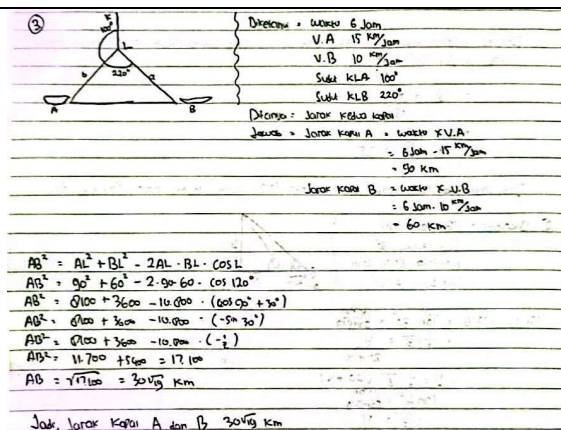 ③
K
100°
L
220°
b
a
A
B
Diketahui = waktu 6 Jam
V.A 15 km/Jam
V.B 10 km/Jam
Sudut KLA 100°
Sudut KLB 220°
Ditanya = Jarak kedua kapal
Jawab = Jarak kapal A = waktu x V.A
= 6 Jam - 15 km/Jam
= 90 km
Jarak kapal B = waktu x V.B
= 6 Jam. 10 km/Jam
= 60 km
AB² = AL² + BL² - 2AL · BL · cos L
AB² = 90² + 60² - 2·90·60 · cos 120°
AB² = 8100 + 3600 - 10.800 · (cos 90° + 30°)
AB² = 8100 + 3600 - 10.800 · (-sin 30°)
AB² = 8100 + 3600 - 10.800 · (-½)
AB² = 11.700 + 5400 = 17.100
AB = √17100 = 30√19 km
Jadi, Jarak Kapal A dan B 30√19 km